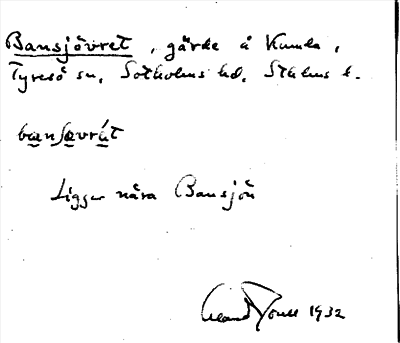 Bansjövret, gärde å Kumla,
Tyresö sn, Sotholms hd, Sthlms l.
bansøvrút
Ligger nära Bansjön
1932